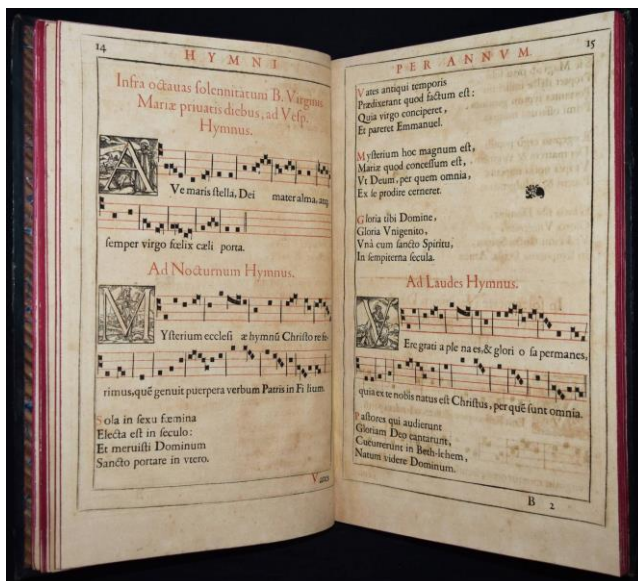 14
HYMNI
Infra octauas solennitatum B. Virginis
Mariæ priuatis diebus, ad Vesp.
Hymnus.
AVe maris stella, Dei mater alma, atq;
semper virgo fœlix cæli porta.
Ad Nocturnum Hymnus.
MYsterium ecclesi æ hymnū Christo refe-
rimus, quē genuit puerpera verbum Patris in Fi lium
Sola in sexu fœmina
Electa est in seculo:
Et meruisti Dominum
Sancto portare in vtero.
Vates
PER ANNVM.
15
Vates antiqui temporis
Prædixerant quod factum est:
Quia virgo conciperet,
Et pareret Emmanuel.
Mysterium hoc magnum est,
Mariæ quod concessum est,
Vt Deum, per quem omnia,
Ex se prodire cerneret.
Gloria tibi Domine,
Gloria Vnigenito,
Vnà cum sancto Spiritu,
In sempiterna secula.
Ad Laudes Hymnus.
VEre grati a ple na es, & glori o sa permanes,
quia ex te nobis natus est Christus, per quē sunt omnia.
Pastores qui audierunt
Gloriam Deo cantarunt,
Cucurrerunt in Beth-lehem,
Natum videre Dominum.
B 2